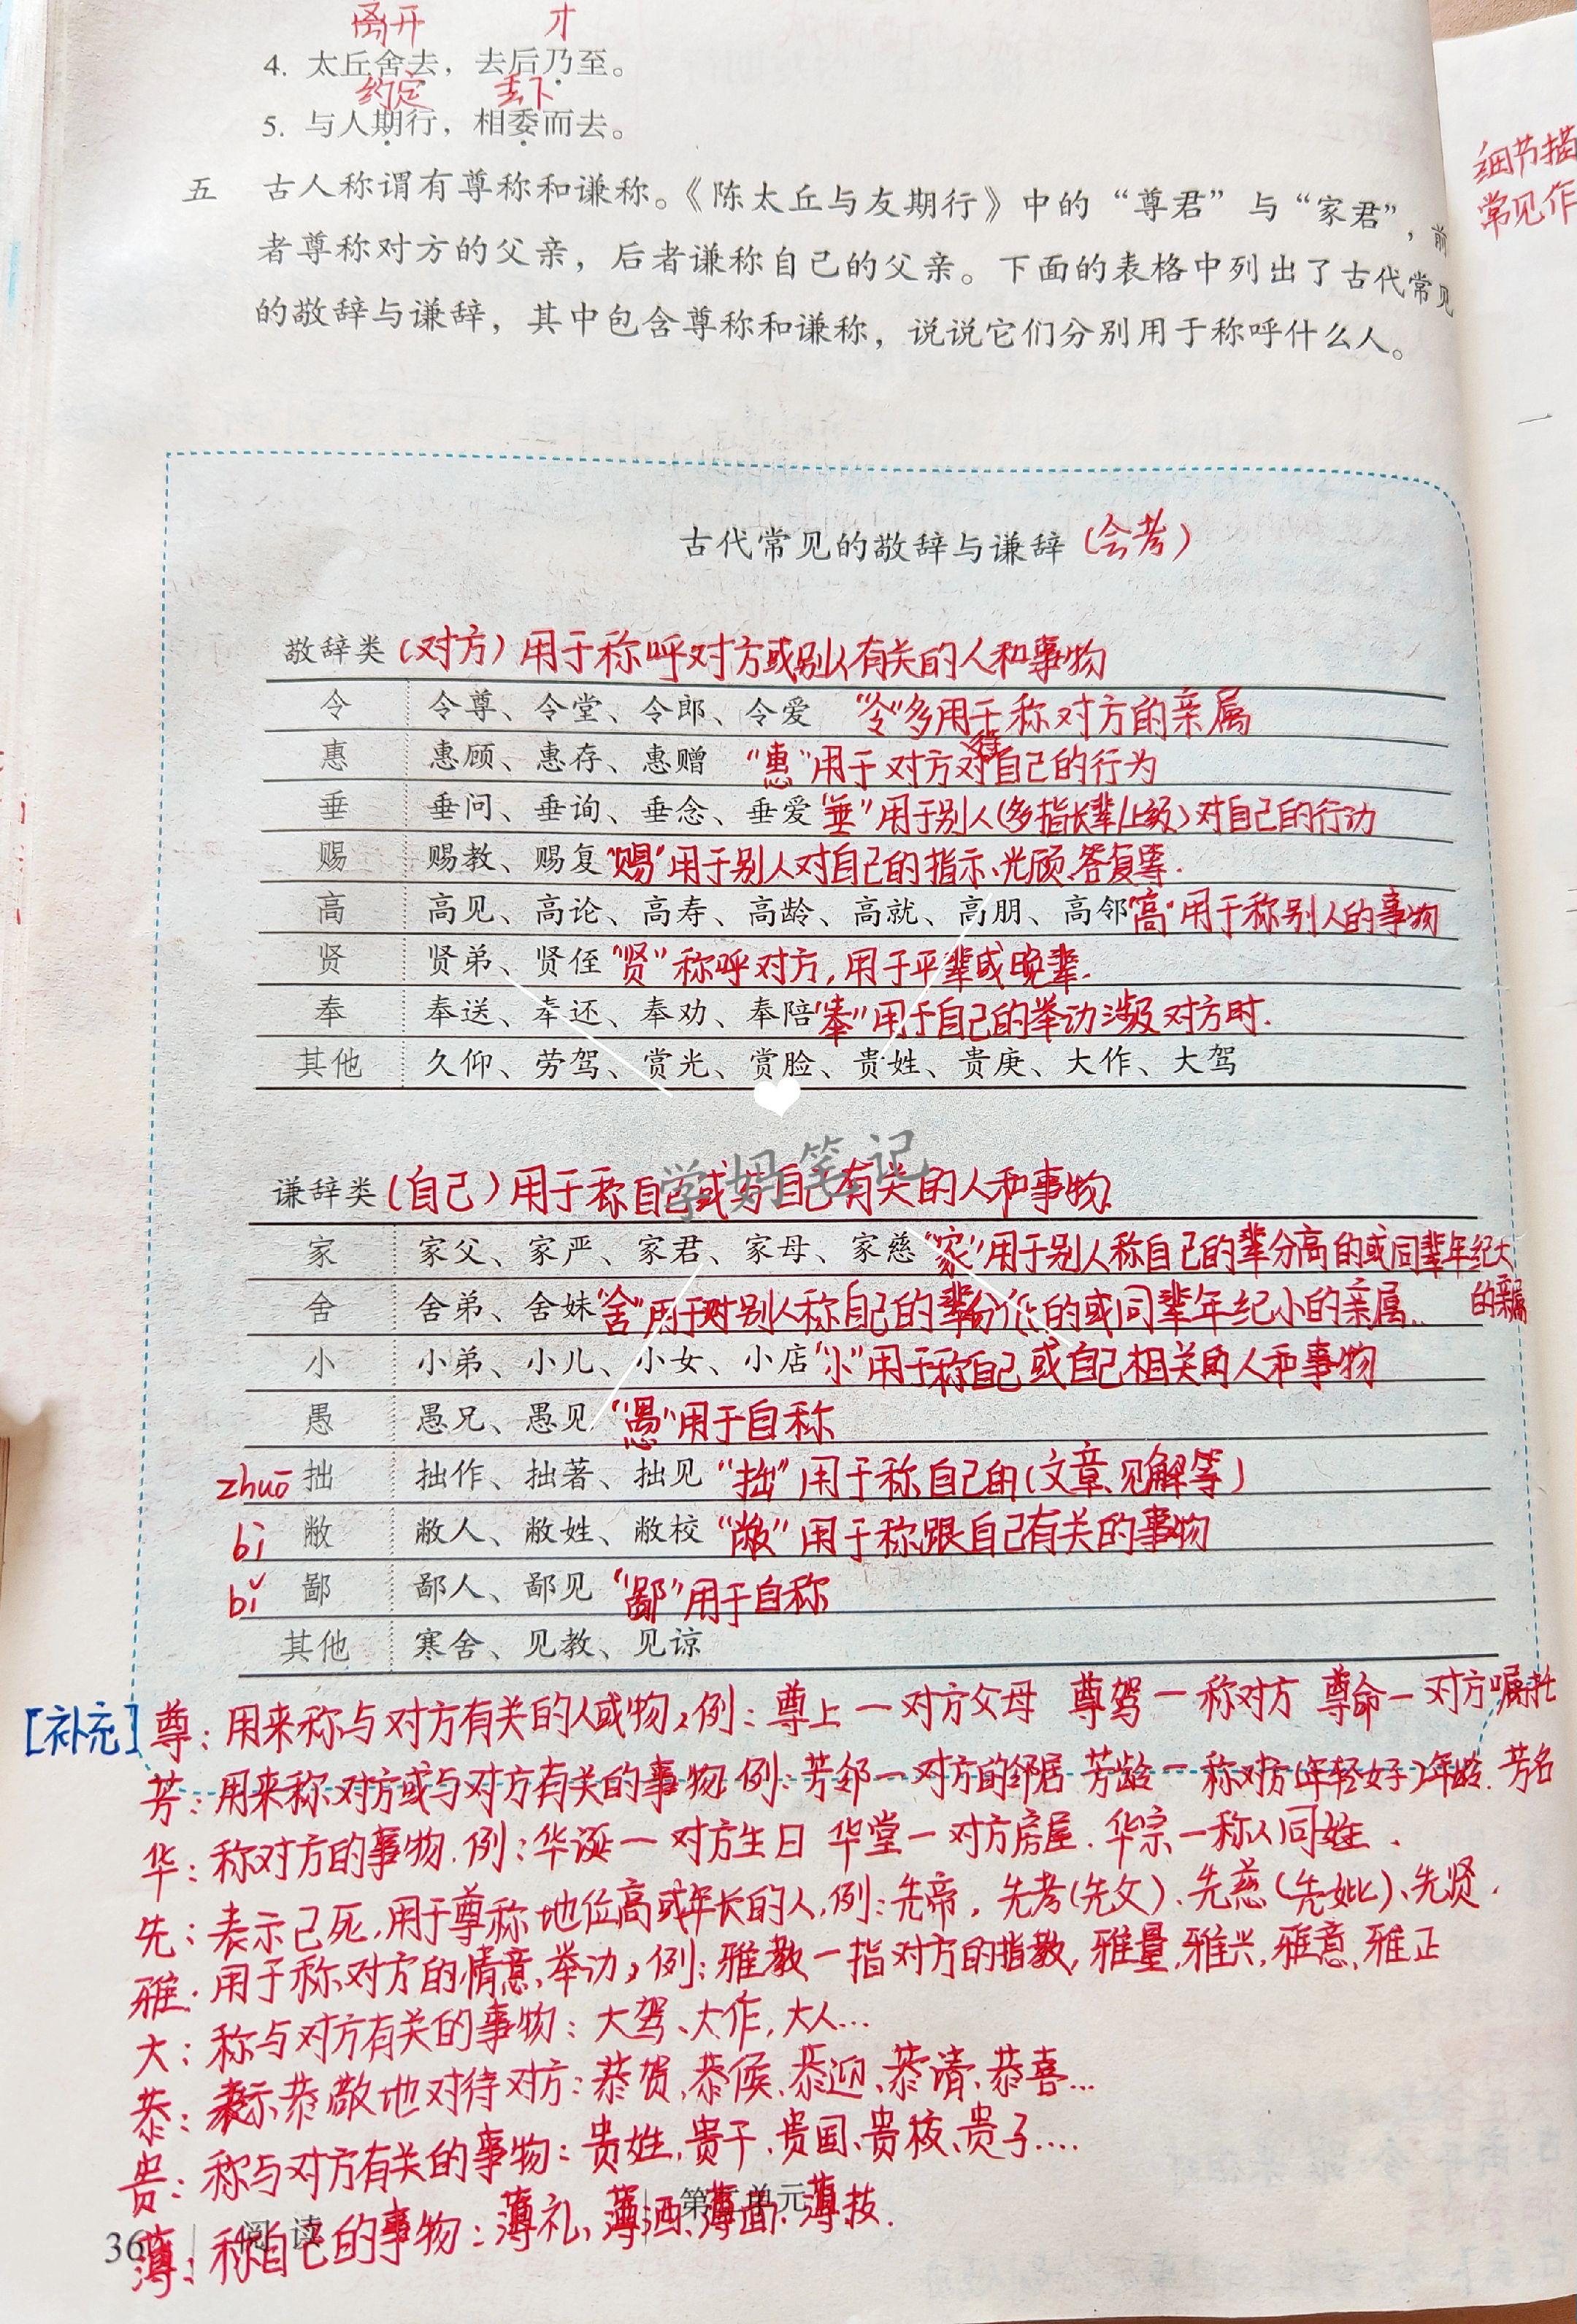 离开 才
4. 太丘舍去，去后乃至。
约定 丢下
5. 与人期行，相委而去。
细节描
常见作
五 古人称谓有尊称和谦称。《陈太丘与友期行》中的“尊君”与“家君”，前
者尊称对方的父亲，后者谦称自己的父亲。下面的表格中列出了古代常见
的敬辞与谦辞，其中包含尊称和谦称，说说它们分别用于称呼什么人。
古代常见的敬辞与谦辞（会考）
敬辞类（对方）用于称呼对方或别人有关的人和事物
令 令尊、令堂、令郎、令爱 “令”多用于称对方的亲属
惠 惠顾、惠存、惠赠 “惠”用于对方对待自己的行为
垂 垂问、垂询、垂念、垂爱“垂”用于别人(多指长辈/上级)对自己的行动
赐 赐教、赐复“赐”用于别人对自己的指示、光顾、答复等.
高 高见、高论、高寿、高龄、高就、高朋、高邻“高”用于称别人的事物
贤 贤弟、贤侄“贤”称呼对方,用于平辈或晚辈.
奉 奉送、奉还、奉劝、奉陪“奉”用于自己的举动涉及对方时.
其他 久仰、劳驾、赏光、赏脸、贵姓、贵庚、大作、大驾
学妈笔记
谦辞类（自己）用于称自己或与自己有关的人和事物.
家 家父、家严、家君、家母、家慈“家”用于别人称自己的辈分高的或同辈年纪大
的亲属
舍 舍弟、舍妹“舍”用于对别人称自己的辈分低的或同辈年纪小的亲属.
小 小弟、小儿、小女、小店“小”用于称自己或自己相关的人和事物
愚 愚兄、愚见“愚”用于自称
zhuō 拙 拙作、拙著、拙见“拙”用于称自己的(文章、见解等)
bì 敝 敝人、敝姓、敝校“敝”用于称跟自己有关的事物
bǐ 鄙 鄙人、鄙见“鄙”用于自称
其他 寒舍、见教、见谅
[补充]尊:用来称与对方有关的人或物,例:尊上—对方父母 尊驾—称对方 尊命—对方嘱托
芳:用来称对方或与对方有关的事物.例:芳邻—对方的邻居 芳龄—称对方(年轻女好)年龄.芳名
华:称对方的事物.例:华诞—对方生日 华堂—对方房屋.华宗—称人同姓.
先:表示已死,用于尊称地位高或年长的人,例:先帝,先考(先父)、先慈(先妣)、先贤.
雅:用于称对方的情意、举动,例:雅教—指对方的指教,雅量,雅兴,雅意,雅正
大:称与对方有关的事物:大驾、大作,大人...
恭:表示恭敬地对待对方:恭贺,恭候,恭迎、恭请、恭喜...
贵:称与对方有关的事物:贵姓,贵干、贵国、贵校、贵子....
薄:称自己的事物:薄礼、薄酒、薄面、薄技.
36 阅读 第二单元